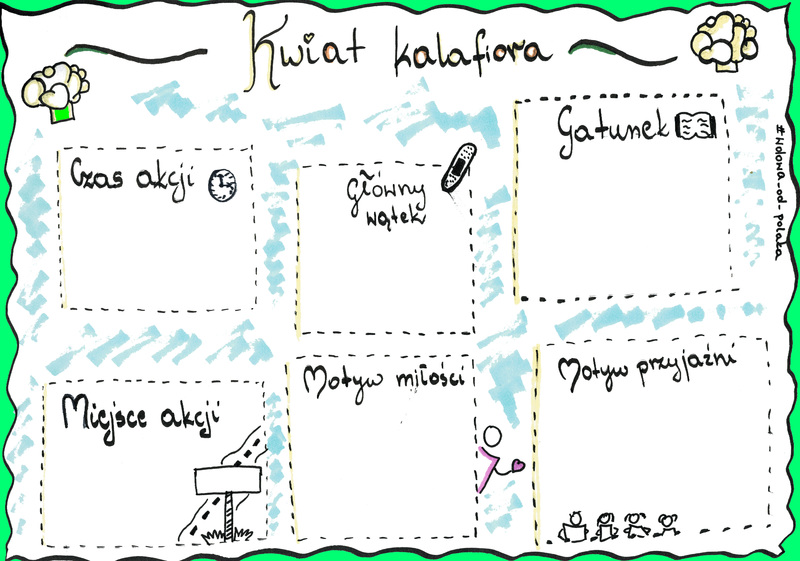 Kwiat kalafiora
Czas akcji
Główny
wątek
Gatunek
#wolowa-od-polaka
Miejsce akcji
Motyw miłości
Motyw przyjaźni